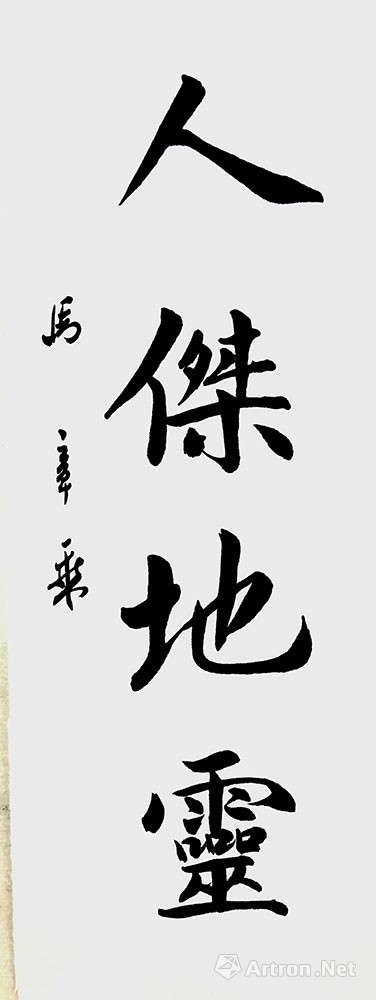 人傑地靈
馬章乘
Artron.Net